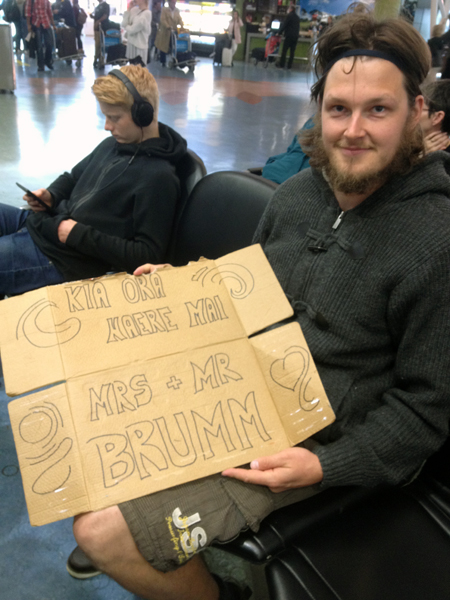 KIA ORA
KAERE MAI
MRS + MR
BRUMM
JS